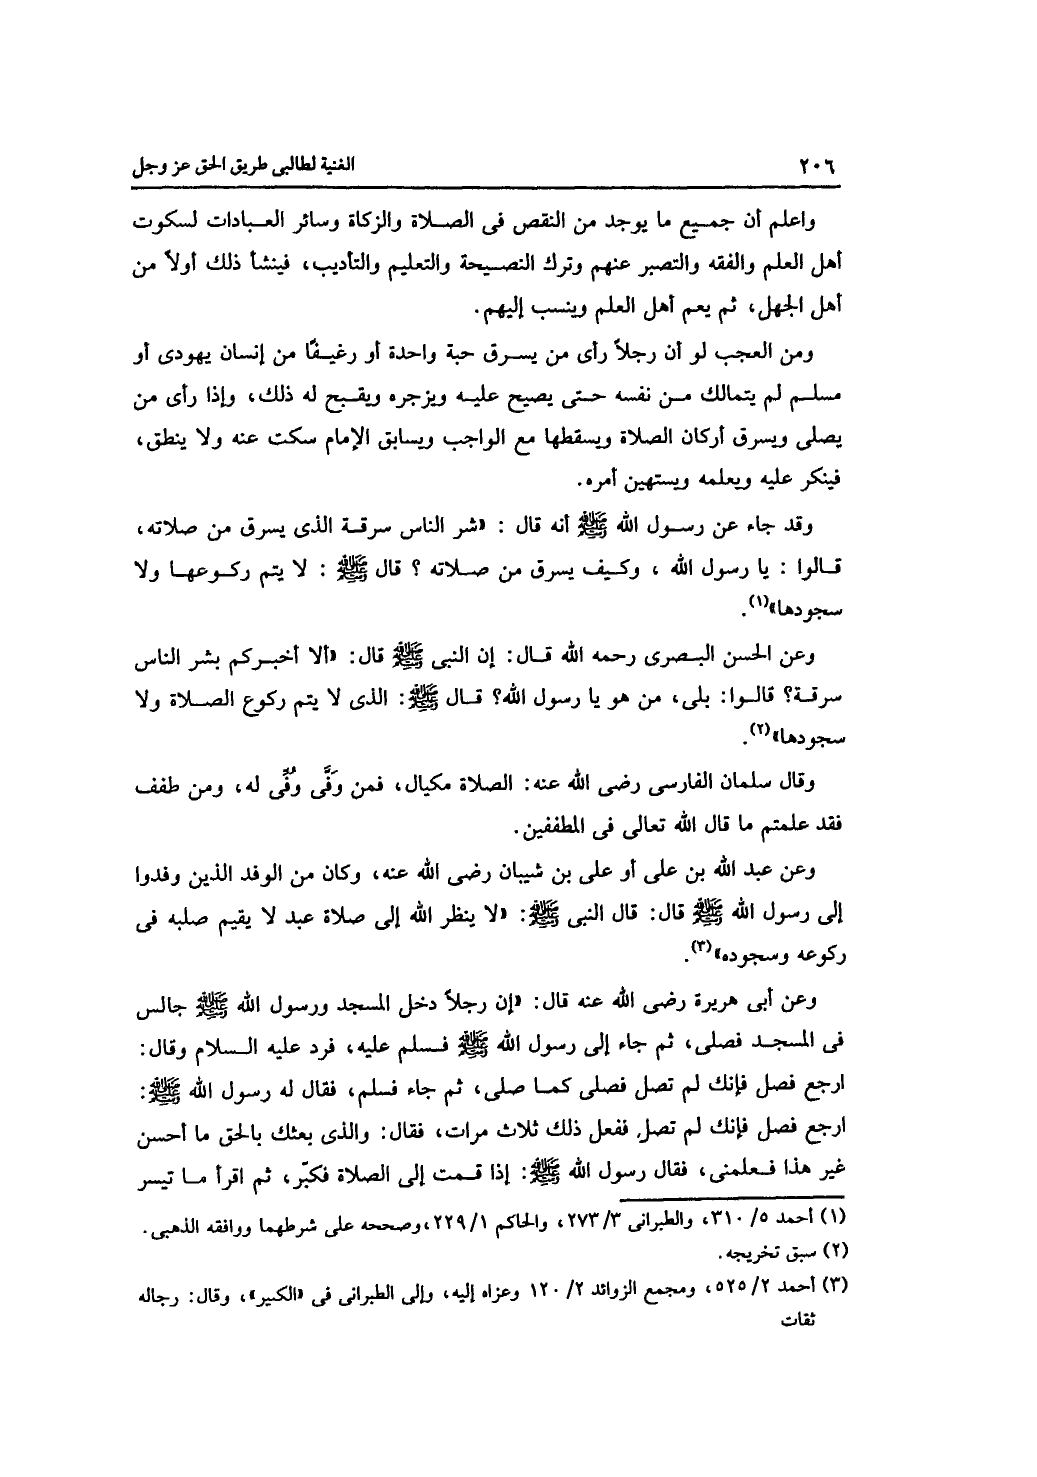 ٢٠٦ الغنية لطالبى طريق الحق عز وجل
واعلم أن جميع ما يوجد من النقص فى الصلاة والزكاة وسائر العبادات لسكوت
أهل العلم والفقه والتصبر عنهم وترك النصيحة والتعليم والتأديب، فينشأ ذلك أولاً من
أهل الجهل، ثم يعم أهل العلم وينسب إليهم.
ومن العجب لو أن رجلاً رأى من يسرق حبة واحدة أو رغيفًا من إنسان يهودى أو
مسلم لم يتمالك من نفسه حتى يصيح عليه ويزجره ويقبح له ذلك، وإذا رأى من
يصلى ويسرق أركان الصلاة ويسقطها مع الواجب ويسابق الإمام سكت عنه ولا ينطق،
فينكر عليه ويعلمه ويستهين أمره.
وقد جاء عن رسول الله ﷺ أنه قال : «شر الناس سرقة الذى يسرق من صلاته،
قالوا : يا رسول الله ، وكيف يسرق من صلاته ؟ قال ﷺ : لا يتم ركوعها ولا
سجودها»(١).
وعن الحسن البصرى رحمه الله قال: إن النبى ﷺ قال: «ألا أخبركم بشر الناس
سرقة؟ قالوا: بلى، من هو يا رسول الله؟ قال ﷺ: الذى لا يتم ركوع الصلاة ولا
سجودها»(٢).
وقال سلمان الفارسى رضى الله عنه: الصلاة مكيال، فمن وَفَّى وُفِّى له، ومن طفف
فقد علمتم ما قال الله تعالى فى المطففين.
وعن عبد الله بن على أو على بن شيبان رضى الله عنه، وكان من الوفد الذين وفدوا
إلى رسول الله ﷺ قال: قال النبى ﷺ: «لا ينظر الله إلى صلاة عبد لا يقيم صلبه فى
ركوعه وسجوده»(٣).
وعن أبى هريرة رضى الله عنه قال: «إن رجلاً دخل المسجد ورسول الله ﷺ جالس
فى المسجد فصلى، ثم جاء إلى رسول الله ﷺ فسلم عليه، فرد عليه السلام وقال:
ارجع فصل فإنك لم تصل فصلى كما صلى، ثم جاء فسلم، فقال له رسول الله ﷺ:
ارجع فصل فإنك لم تصل. ففعل ذلك ثلاث مرات، فقال: والذى بعثك بالحق ما أحسن
غير هذا فعلمنى، فقال رسول الله ﷺ: إذا قمت إلى الصلاة فكبّر، ثم اقرأ ما تيسر
(١) أحمد ٥/ ٣١٠، والطبرانى ٣/ ٢٧٣، والحاكم ١/ ٢٢٩،وصححه على شرطهما ووافقه الذهبى.
(٢) سبق تخريجه.
(٣) أحمد ٢/ ٥٢٥، ومجمع الزوائد ٢/ ١٢٠ وعزاه إليه، وإلى الطبرانى فى «الكبير»، وقال: رجاله
ثقات